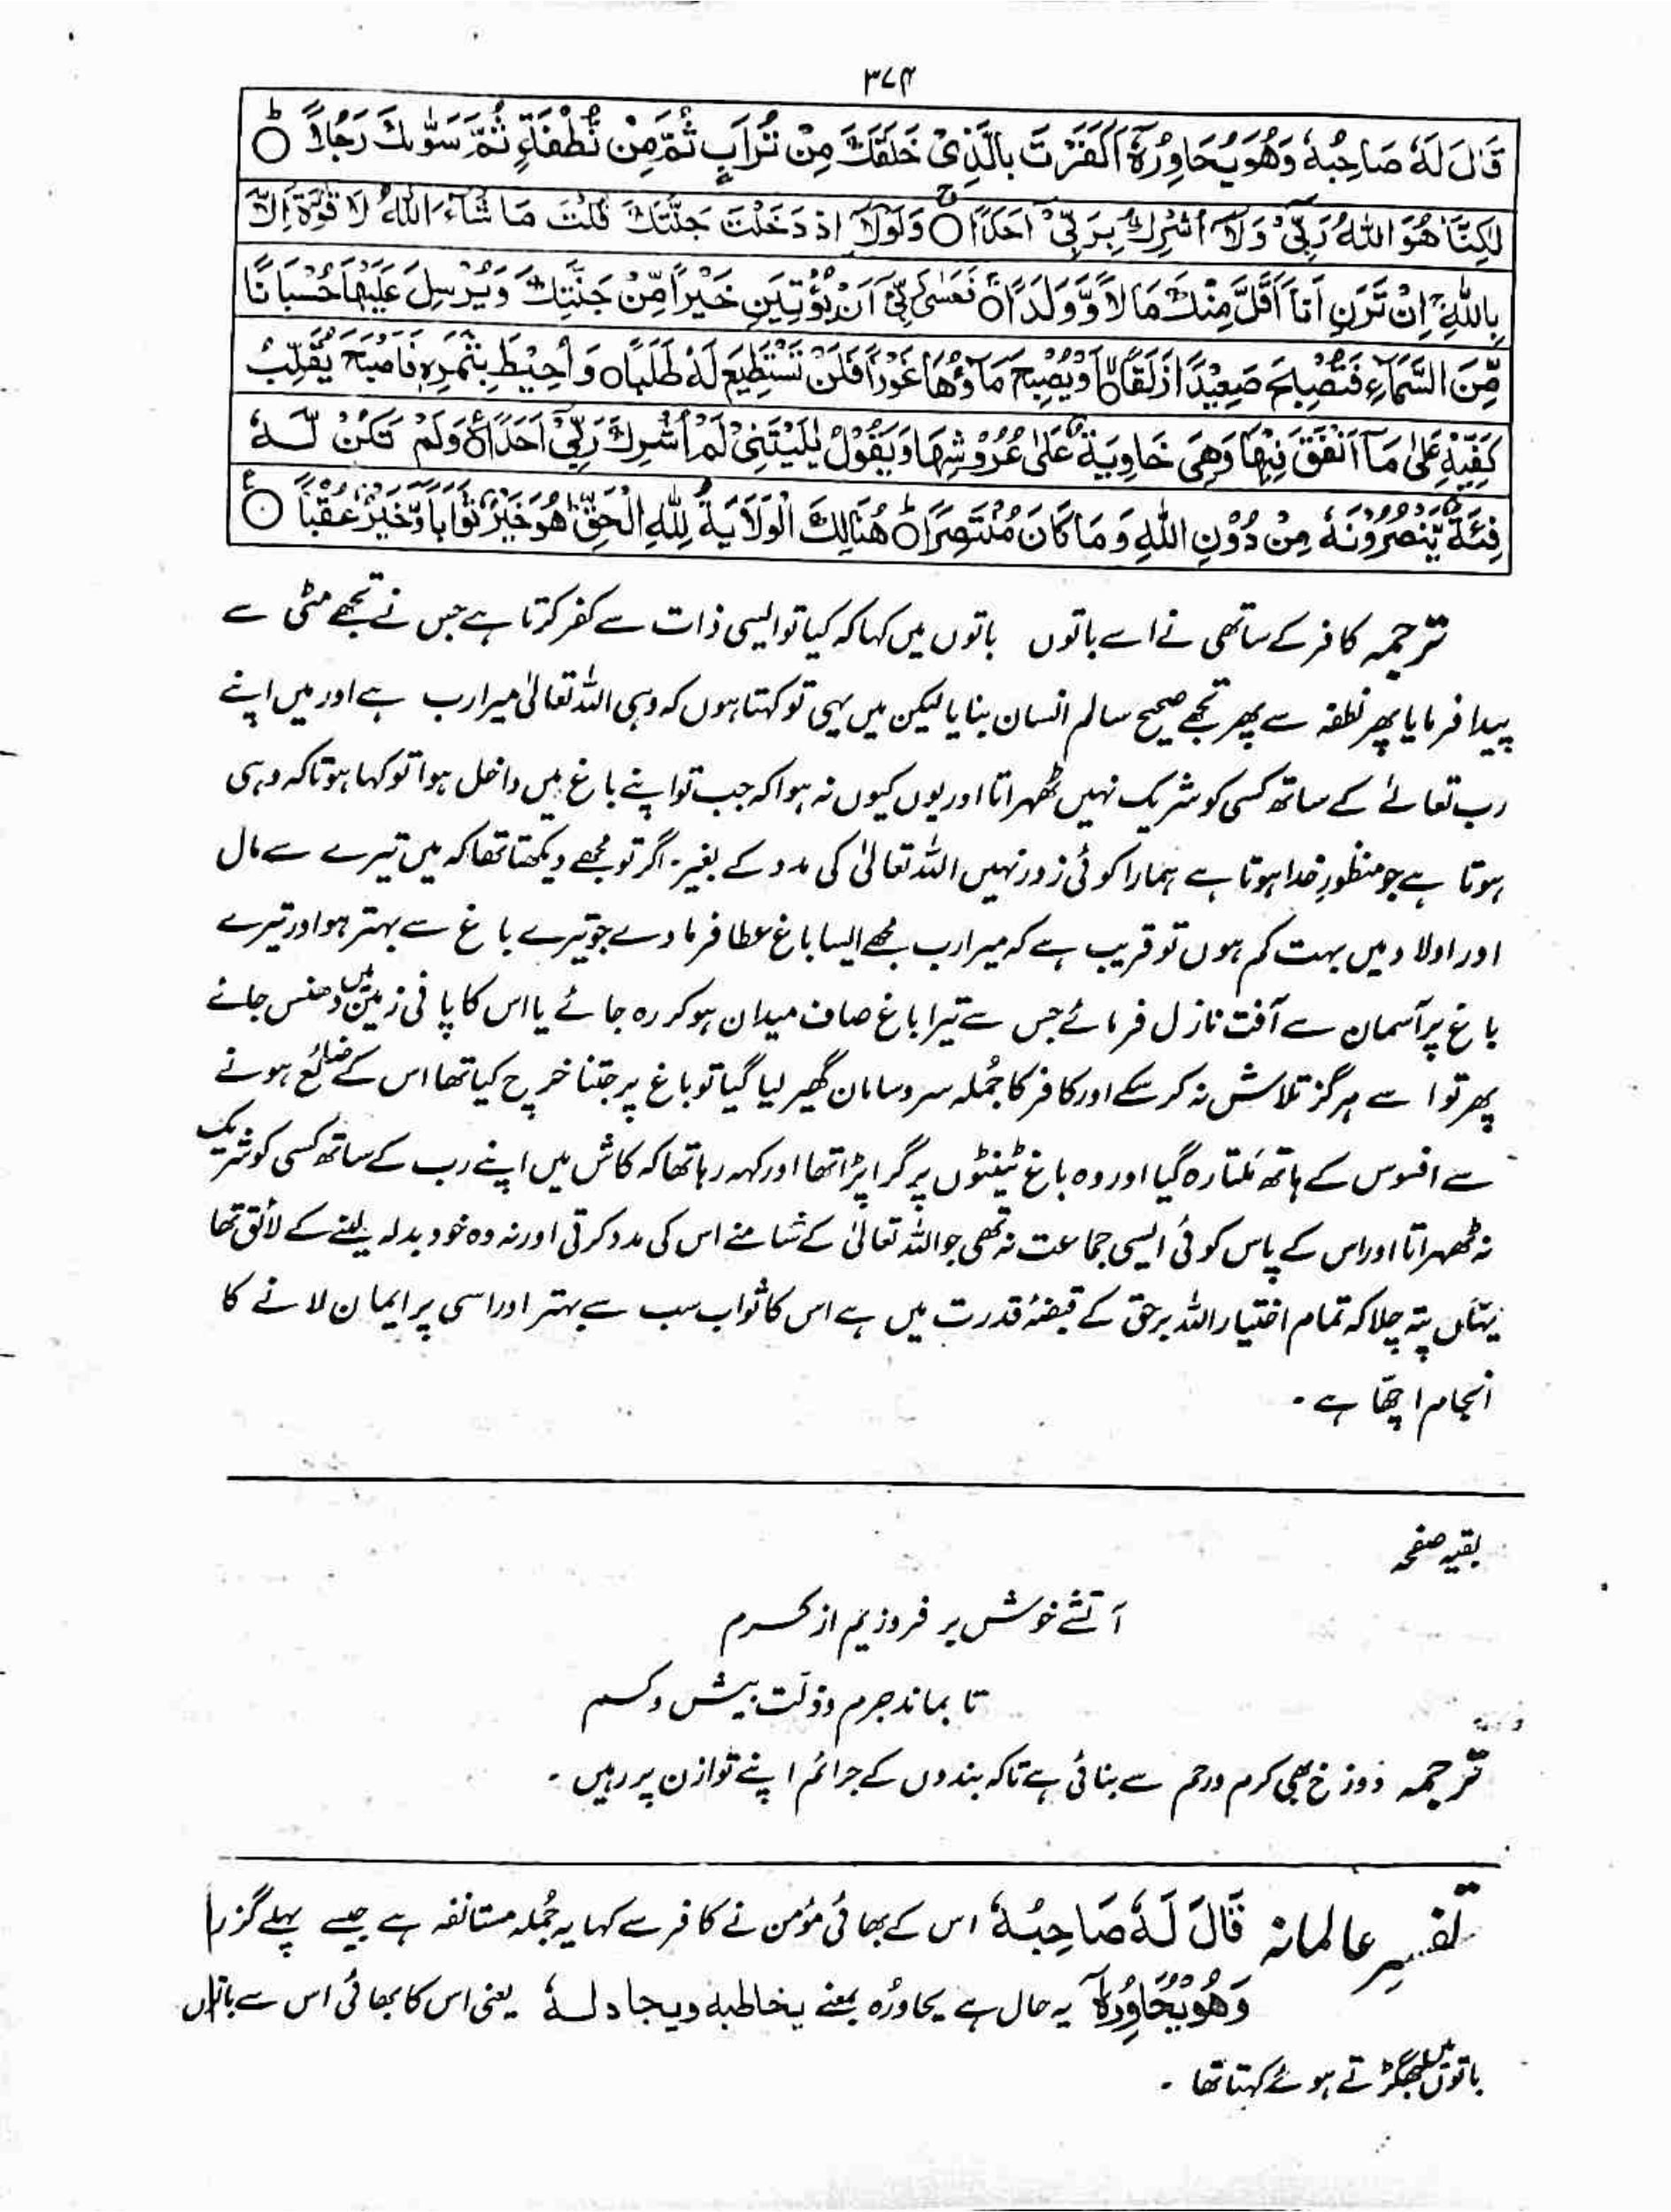 ۳۷۴
قَالَ لَهٗ صَاحِبُهٗ وَهُوَ يُحَاوِرُهٗٓ اَكَفَرْتَ بِالَّذِىْ خَلَقَكَ مِنْ تُرَابٍ ثُمَّ مِنْ نُّطْفَةٍ ثُمَّ سَوّٰىكَ رَجُلًا ○ؕ
لٰكِنَّا۠ هُوَ اللّٰهُ رَبِّىْ وَلَآ اُشْرِكُ بِرَبِّىْٓ اَحَدًا ○ وَلَوْلَآ اِذْ دَخَلْتَ جَنَّتَكَ قُلْتَ مَا شَآءَ اللّٰهُ لَا قُوَّةَ اِلَّا
بِاللّٰهِ ۚ اِنْ تَرَنِ اَنَا اَقَلَّ مِنْكَ مَالًا وَّوَلَدًا ○ فَعَسٰى رَبِّىْٓ اَنْ يُّؤْتِيَنِ خَيْرًا مِّنْ جَنَّتِكَ وَيُرْسِلَ عَلَيْهَا حُسْبَانًا
مِّنَ السَّمَآءِ فَتُصْبِحَ صَعِيْدًا زَلَقًا ○ اَوْ يُصْبِحَ مَآؤُهَا غَوْرًا فَلَنْ تَسْتَطِيْعَ لَهٗ طَلَبًا ○ وَاُحِيْطَ بِثَمَرِهٖ فَاَصْبَحَ يُقَلِّبُ
كَفَّيْهِ عَلٰى مَآ اَنْفَقَ فِيْهَا وَهِىَ خَاوِيَةٌ عَلٰى عُرُوْشِهَا وَيَقُوْلُ يٰلَيْتَنِىْ لَمْ اُشْرِكْ بِرَبِّىْٓ اَحَدًا ○ وَلَمْ تَكُنْ لَّهٗ
فِئَةٌ يَّنْصُرُوْنَهٗ مِنْ دُوْنِ اللّٰهِ وَمَا كَانَ مُنْتَصِرًا ○ؕ هُنَالِكَ الْوَلَايَةُ لِلّٰهِ الْحَقِّ ؕ هُوَ خَيْرٌ ثَوَابًا وَّخَيْرٌ عُقْبًا ○
ترجمہ کافر کے ساتھی نے اسے باتوں باتوں میں کہا کہ کیا تو ایسی ذات سے کفر کرتا ہے جس نے تجھے مٹی سے
پیدا فرمایا پھر نطفہ سے پھر تجھے صحیح سالم انسان بنایا لیکن میں یہی تو کہتا ہوں کہ وہی اللہ تعالیٰ میرا رب ہے اور میں اپنے
رب تعالےٰ کے ساتھ کسی کو شریک نہیں ٹھہراتا اور یوں کیوں نہ ہوا کہ جب تو اپنے باغ میں داخل ہوا تو کہا ہوتا کہ وہی
ہوتا ہے جو منظورِ خدا ہوتا ہے ہمارا کوئی زور نہیں اللہ تعالیٰ کی مدد کے بغیر۔ اگر تو مجھے دیکھتا تھا کہ میں تیرے سے مال
اور اولاد میں بہت کم ہوں تو قریب ہے کہ میرا رب مجھے ایسا باغ عطا فرما دے جو تیرے باغ سے بہتر ہو اور تیرے
باغ پر آسمان سے آفت نازل فرمائے جس سے تیرا باغ صاف میدان ہو کر رہ جائے یا اس کا پانی زمین میں دھنس جائے
پھر تو اسے ہرگز تلاش نہ کر سکے اور کافر کا جُملہ سر و سامان گھیر لیا گیا تو باغ پر جتنا خرچ کیا تھا اس کے ضائع ہونے
سے افسوس کے ہاتھ مَلتا رہ گیا اور وہ باغ ٹینٹوں پر گرا پڑا تھا اور کہہ رہا تھا کہ کاش میں اپنے رب کے ساتھ کسی کو شریک
نہ ٹھہراتا اور اس کے پاس کوئی ایسی جماعت نہ تھی جو اللہ تعالیٰ کے سامنے اس کی مدد کرتی اور نہ وہ خود بدلہ لینے کے لائق تھا
یہاں پتہ چلا کہ تمام اختیار اللہ برحق کے قبضۂ قدرت میں ہے اس کا ثواب سب سے بہتر اور اسی پر ایمان لانے کا
انجام اچھّا ہے ۔
بقیہ صفحہ
آتشے خوش بر فروزیم از کرم
تا بماند جرم و ذلت بیش و کم
ترجمہ دوزخ بھی کرم و رحم سے بنائی ہے تاکہ بندوں کے جرائم اپنے توازن پر رہیں ۔
تفسیر عالمانہ قَالَ لَهٗ صَاحِبُهٗ اس کے بھائی مؤمن نے کافر سے کہا یہ جُملہ مستانفہ ہے جیسے پہلے گزرا
وَهُوَ يُحَاوِرُهٗٓ یہ حال ہے یحاورُہ بمعنے یخاطبه ویجادله یعنی اس کا بھائی اس سے باتوں
باتوں میں جھگڑتے ہوئے کہتا تھا ۔